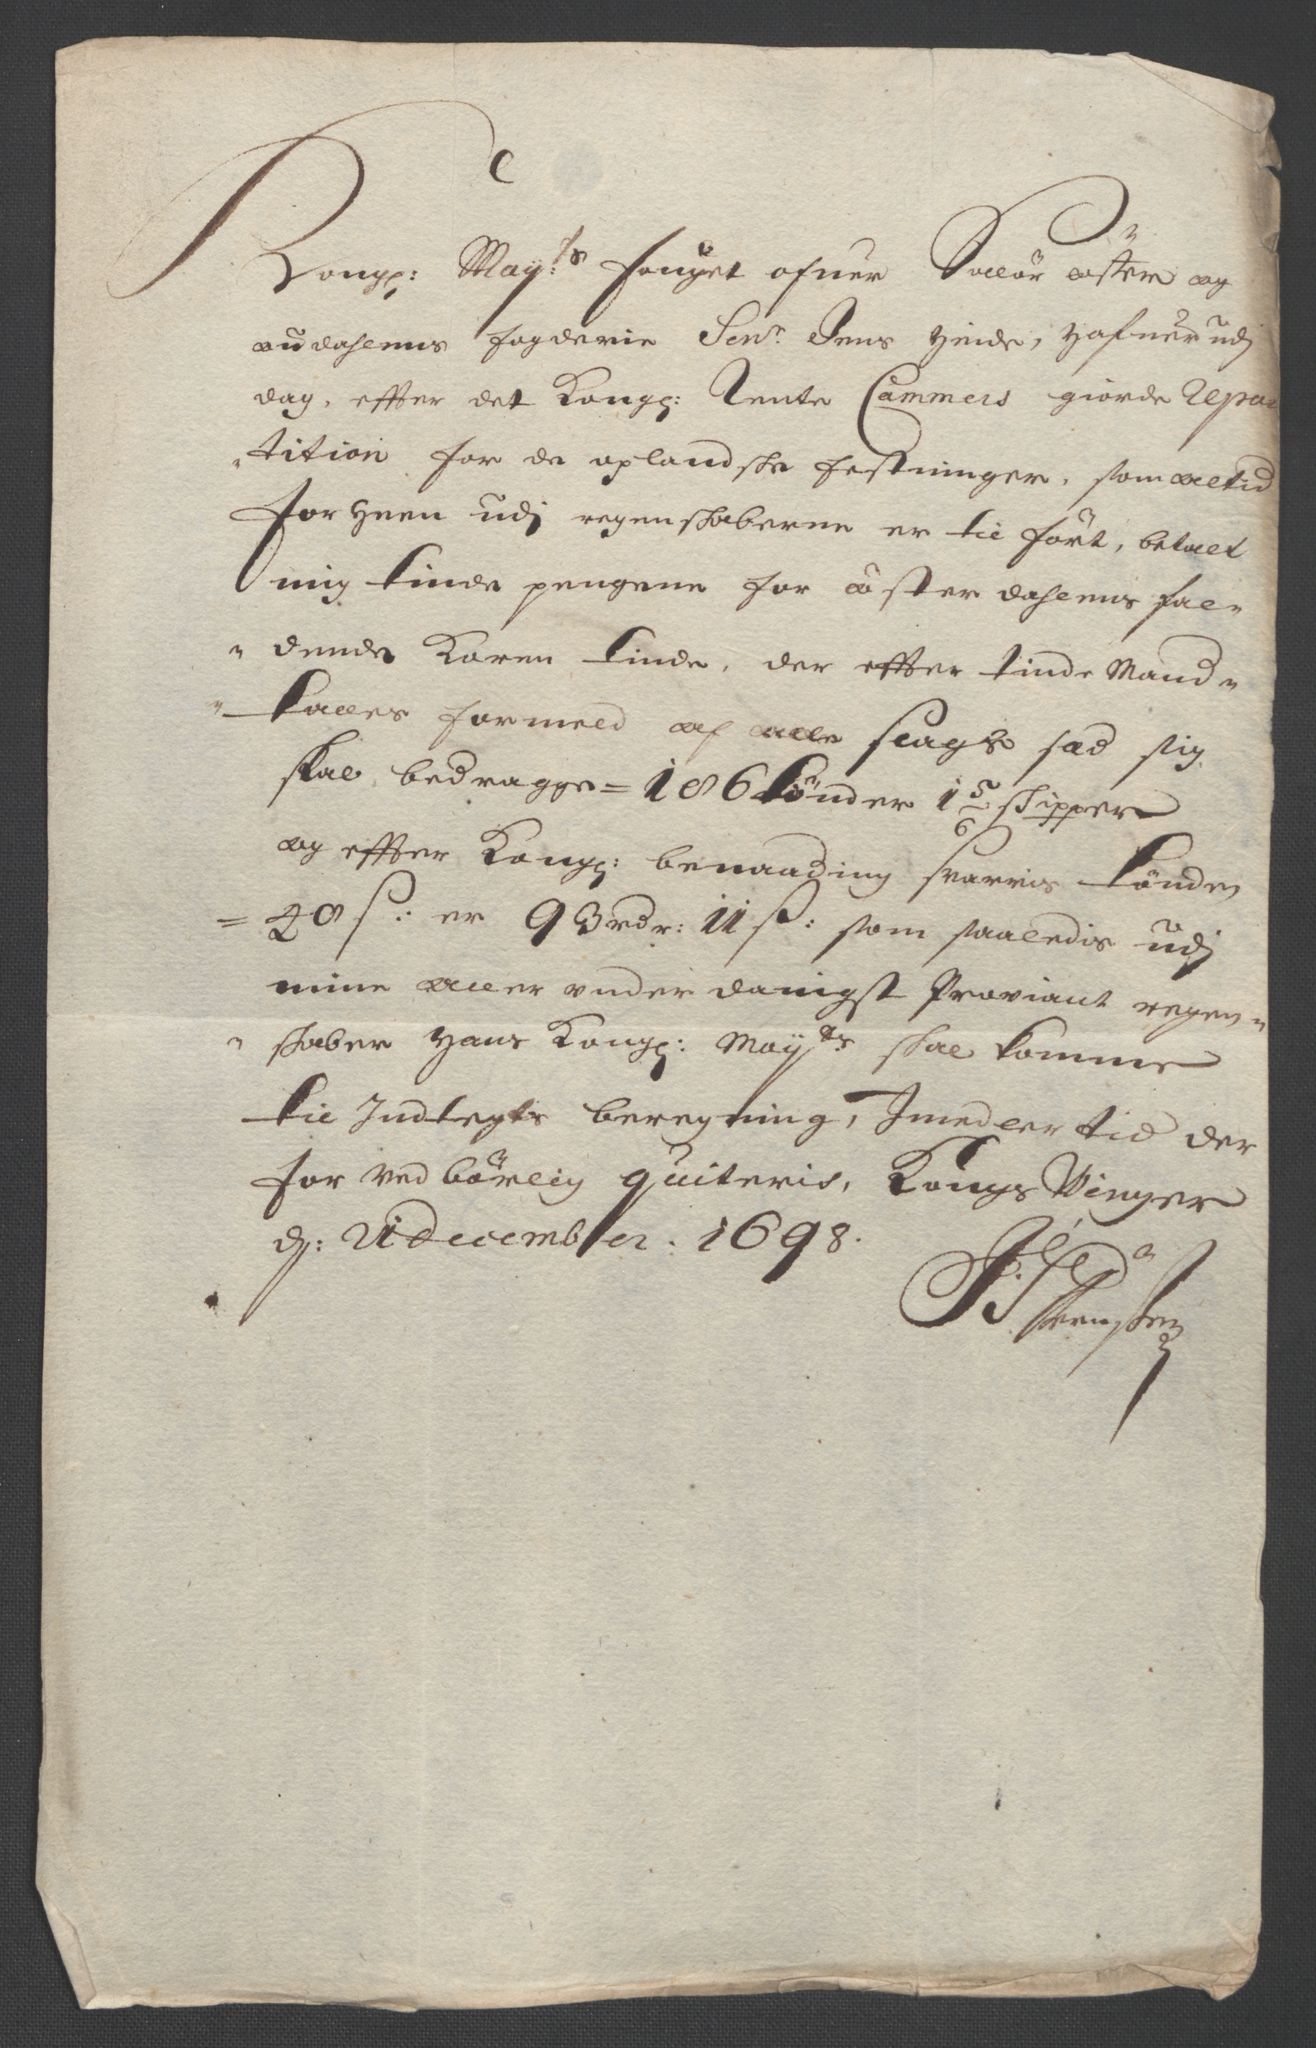 Kongl: May:ts fouget ofuer Soelör öster og
audahlens fogderie Senr. Jens Hinde, Hafuer udj
dag, effter det Kongl: Rente Cammers giorde Repar
"tition for de oplandske festninger, som altid
forheen udj regenskaberne er til fört, betalt
mig tiende pengene for österdahlens fal„
„dende Koren tiende, der effter tiende Mand„
„tallets formeld af alle slags sæd sig
skal bedragge = 186 tönder 1 5/6 skipper
og effter Kongl: benaading svaris tönden
= 48 s: er 93 rdr: 11 s: som saaledis udj
mine aller underdanigst Proviant regen„
„skaber Hans Kongl: Mayts skal komme
til Indtegts beregning, Imedlertid der
for ved börlig quiteris, Kongs Winger
dj: 21 december. 1698.